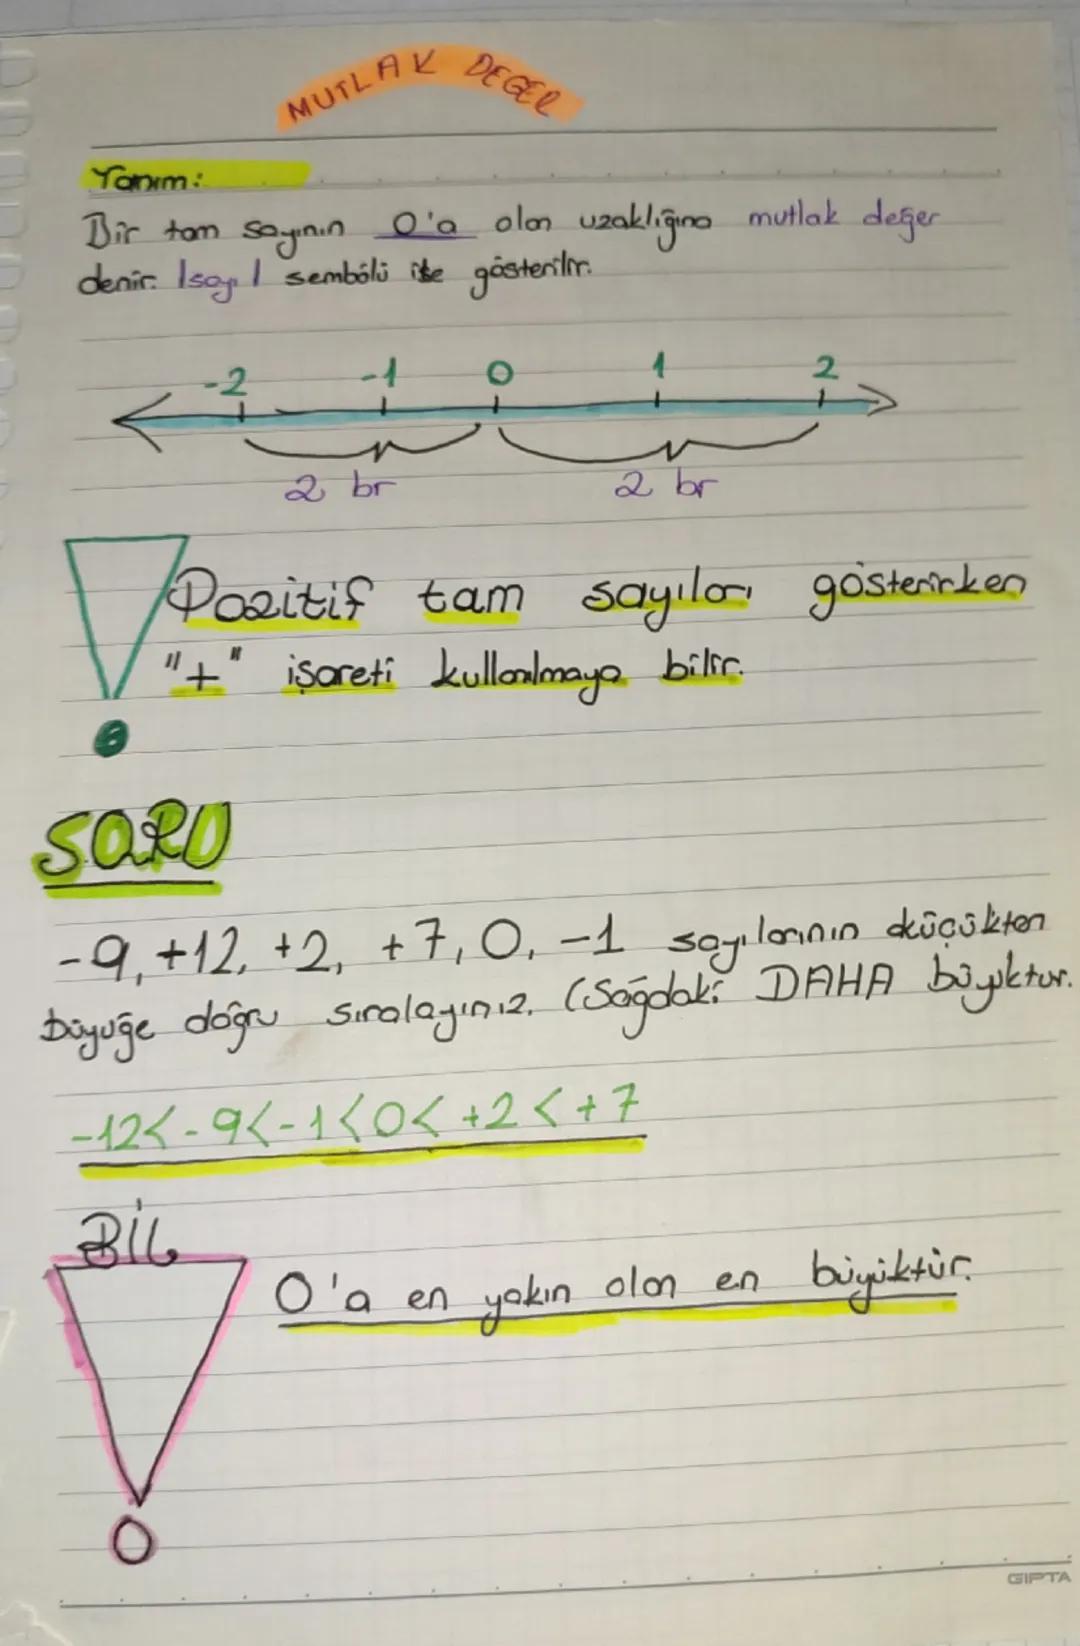 MUTLAK DEĞER
Tanım:
Bir tam sayının 0'a olan uzaklığına mutlak değer
denir. |sayı| sembölü ile gösterilir.
-2 -1 0 1 2
2 br 2 br
Pozitif tam sayıları gösterirken
"+" işareti kullanılmaya bilir.
SORU
-9, +12, +2, +7, 0, -1 sayılarının küçükten
büyüğe doğru sıralayınız. (Sağdaki DAHA büyüktür.
-12<-9<-1<0<+2<+7
BİL
0'a en yakın olan en büyüktür.
GIPTA